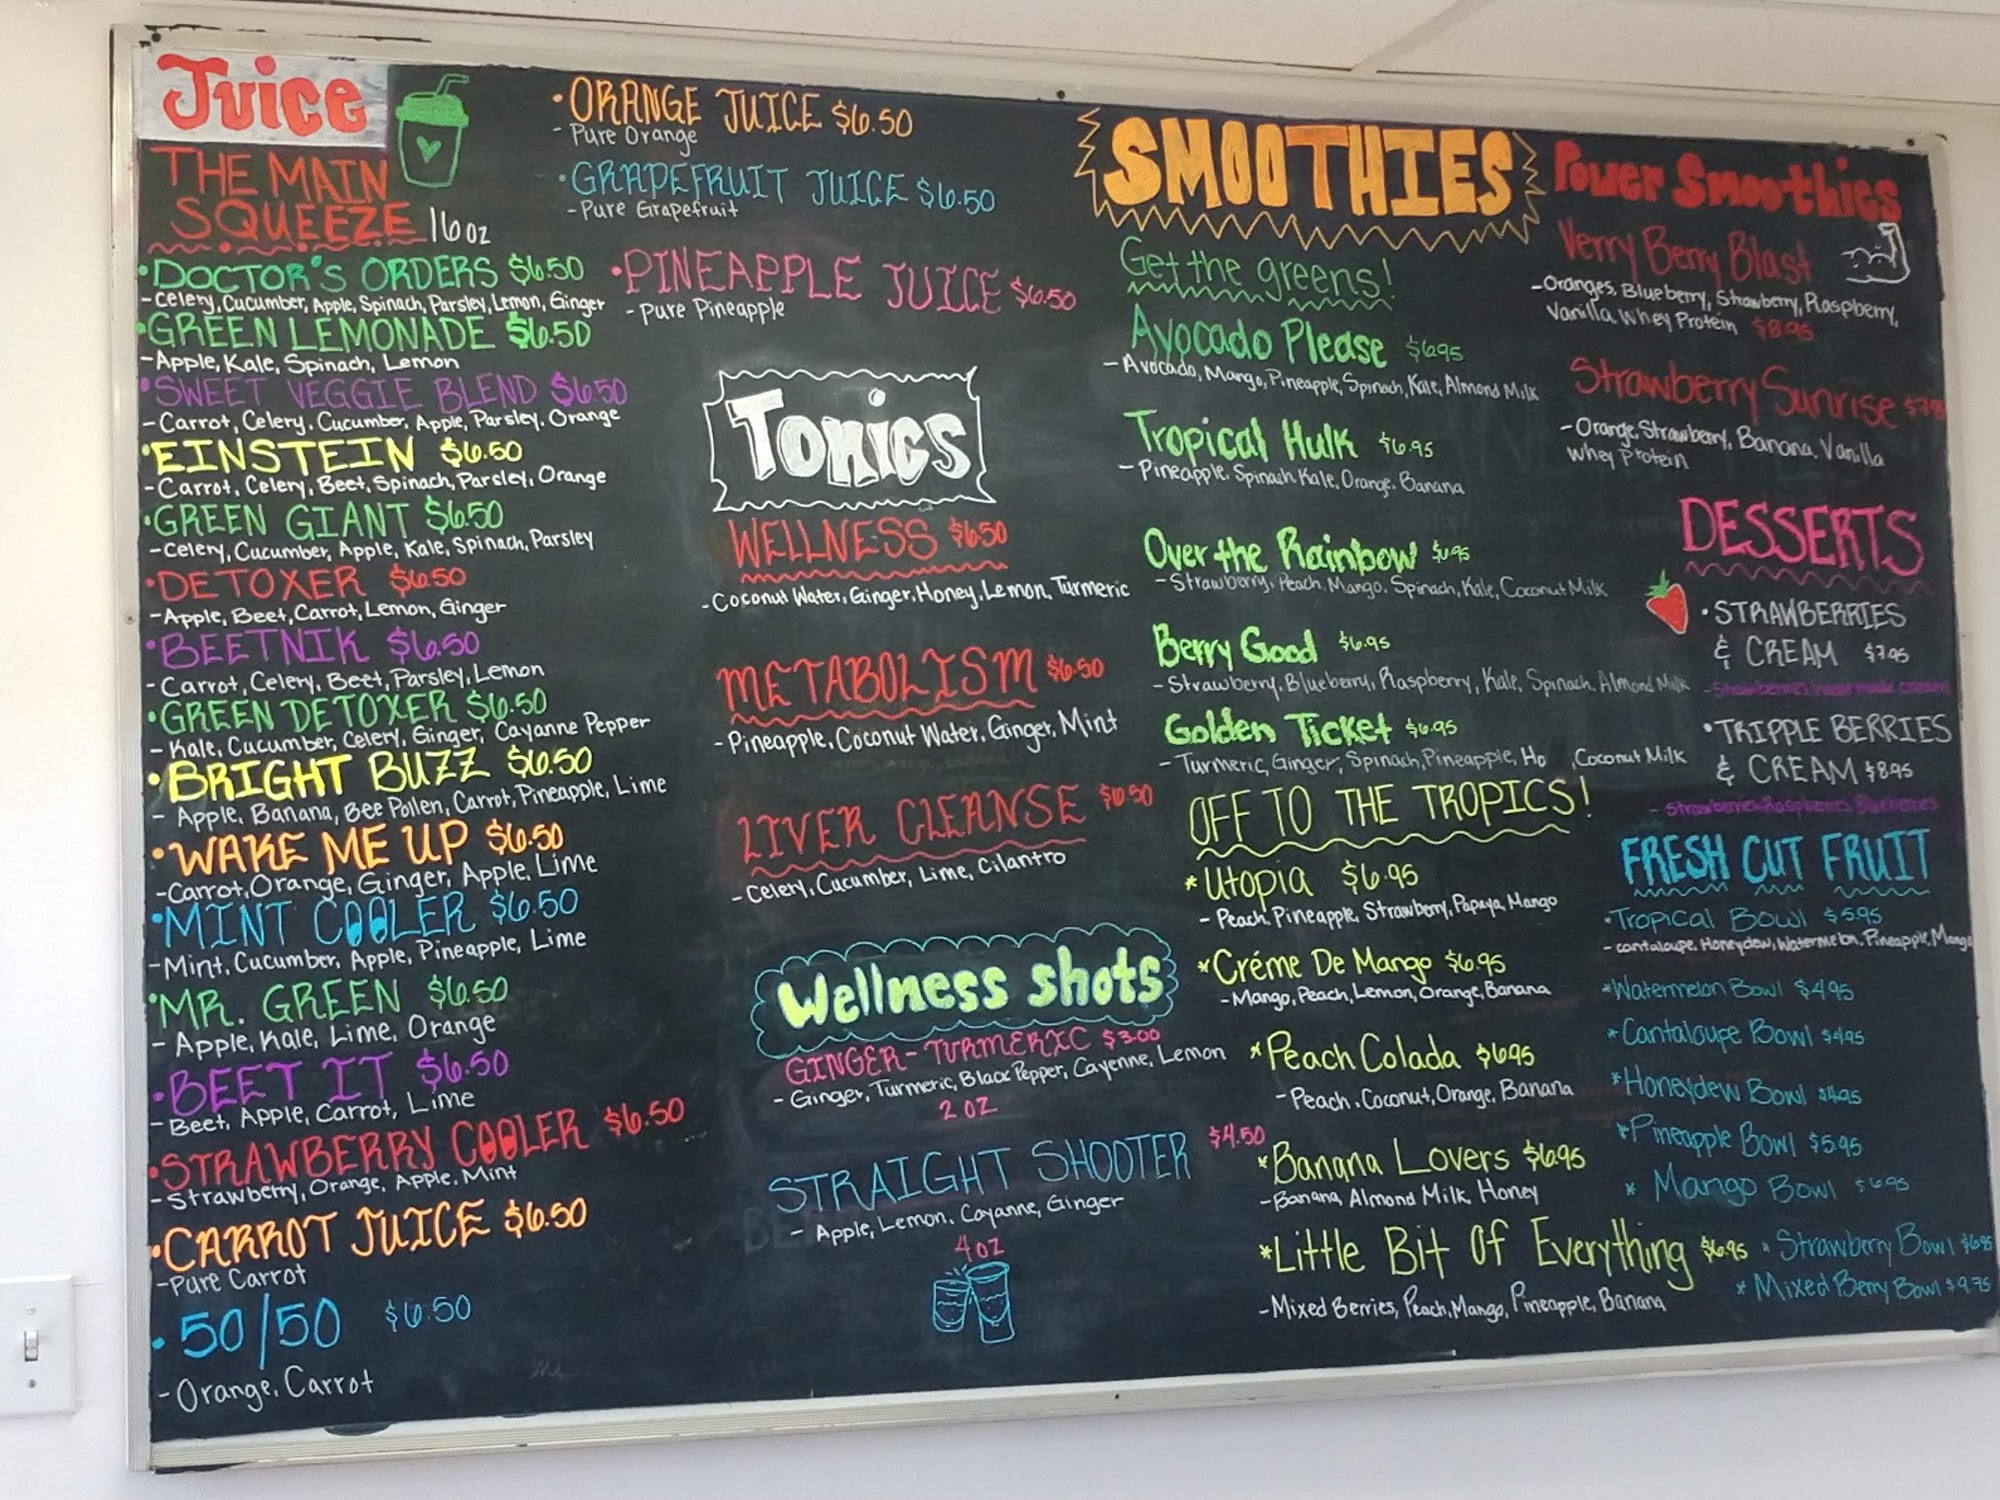 Juice
THE MAIN
SQUEEZE 16oz
•DOCTOR'S ORDERS $6.50
-Celery, Cucumber, Apple, Spinach, Parsley, Lemon, Ginger
•GREEN LEMONADE $6.50
-Apple, Kale, Spinach, Lemon
•SWEET VEGGIE BLEND $6.50
-Carrot, Celery, Cucumber, Apple, Parsley, Orange
•EINSTEIN $6.50
-Carrot, Celery, Beet, Spinach, Parsley, Orange
•GREEN GIANT $6.50
-Celery, Cucumber, Apple, Kale, Spinach, Parsley
•DETOXER $6.50
-Apple, Beet, Carrot, Lemon, Ginger
•BEETNIK $6.50
-Carrot, Celery, Beet, Parsley, Lemon
•GREEN DETOXER $6.50
-Kale, Cucumber, Celery, Ginger, Cayanne Pepper
•BRIGHT BUZZ $6.50
-Apple, Banana, Bee Pollen, Carrot, Pineapple, Lime
•WAKE ME UP $6.50
-Carrot, Orange, Ginger, Apple, Lime
•MINT COOLER $6.50
-Mint, Cucumber, Apple, Pineapple, Lime
•MR. GREEN $6.50
-Apple, Kale, Lime, Orange
•BEET IT $6.50
-Beet, Apple, Carrot, Lime
•STRAWBERRY COOLER $6.50
-Strawberry, Orange, Apple, Mint
•CARROT JUICE $6.50
-Pure Carrot
•50/50 $6.50
-Orange, Carrot
•ORANGE JUICE $6.50
-Pure Orange
•GRAPEFRUIT JUICE $6.50
-Pure Grapefruit
•PINEAPPLE JUICE $6.50
-Pure Pineapple
Tonics
WELLNESS $6.50
-Coconut Water, Ginger, Honey, Lemon, Turmeric
METABOLISM $6.50
-Pineapple, Coconut Water, Ginger, Mint
LIVER CLEANSE $6.50
-Celery, Cucumber, Lime, Cilantro
Wellness shots
GINGER-TURMERIC $3.00
-Ginger, Turmeric, Black Pepper, Cayenne, Lemon
2 OZ
STRAIGHT SHOOTER $4.50
-Apple, Lemon, Cayanne, Ginger
4 OZ
SMOOTHIES
Get the greens!
Avocado Please $6.95
-Avocado, Mango, Pineapple, Spinach, Kale, Almond Milk
Tropical Hulk $6.95
-Pineapple, Spinach, Kale, Orange, Banana
Over the Rainbow $6.95
-Strawberry, Peach, Mango, Spinach, Kale, Coconut Milk
Berry Good $6.95
-Strawberry, Blueberry, Raspberry, Kale, Spinach, Almond Milk
Golden Ticket $6.95
-Turmeric, Ginger, Spinach, Pineapple, Ho , Coconut Milk
OFF TO THE TROPICS!
*Utopia $6.95
-Peach, Pineapple, Strawberry, Papaya, Mango
*Créme De Mango $6.95
-Mango, Peach, Lemon, Orange, Banana
*Peach Colada $6.95
-Peach, Coconut, Orange, Banana
*Banana Lovers $6.95
-Banana, Almond Milk, Honey
*Little Bit Of Everything $6.95
-Mixed Berries, Peach, Mango, Pineapple, Banana
Power Smoothies
Verry Berry Blast
-Oranges, Blueberry, Strawberry, Raspberry,
Vanilla Whey Protein $8.95
Strawberry Sunrise
-Orange, Strawberry, Banana, Vanilla
Whey Protein
DESSERTS
•STRAWBERRIES
& CREAM $7.95
•TRIPPLE BERRIES
& CREAM $8.95
-Strawberries, Raspberries, Blueberries
FRESH CUT FRUIT
•Tropical Bowl $5.95
-Cantaloupe, Honeydew, Watermelon, Pineapple, Mango
*Watermelon Bowl $4.95
*Cantaloupe Bowl $4.95
*Honeydew Bowl $4.95
*Pineapple Bowl $5.95
*Mango Bowl $6.95
*Strawberry Bowl $6.95
*Mixed Berry Bowl